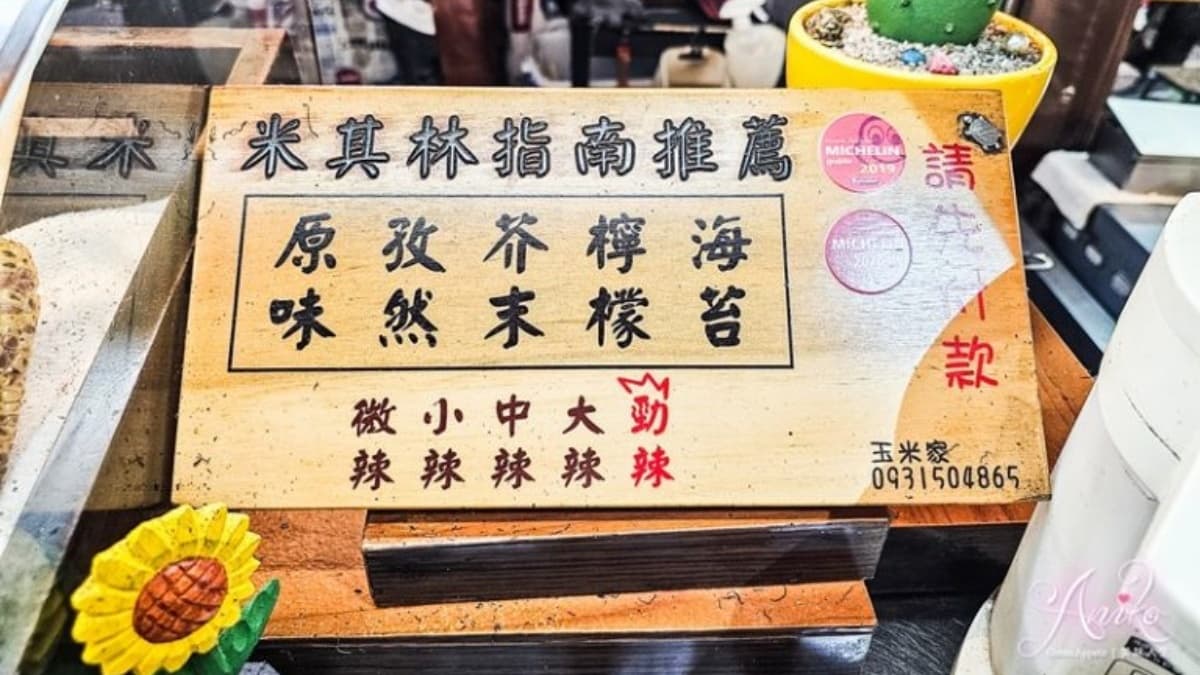 米其林指南推薦
原味 孜然 芥末 檸檬 海苔
微辣 小辣 中辣 大辣 勁辣
MICHELIN
guide
2019
MICHELIN
請先付款
玉米家
0931504865
Aniko